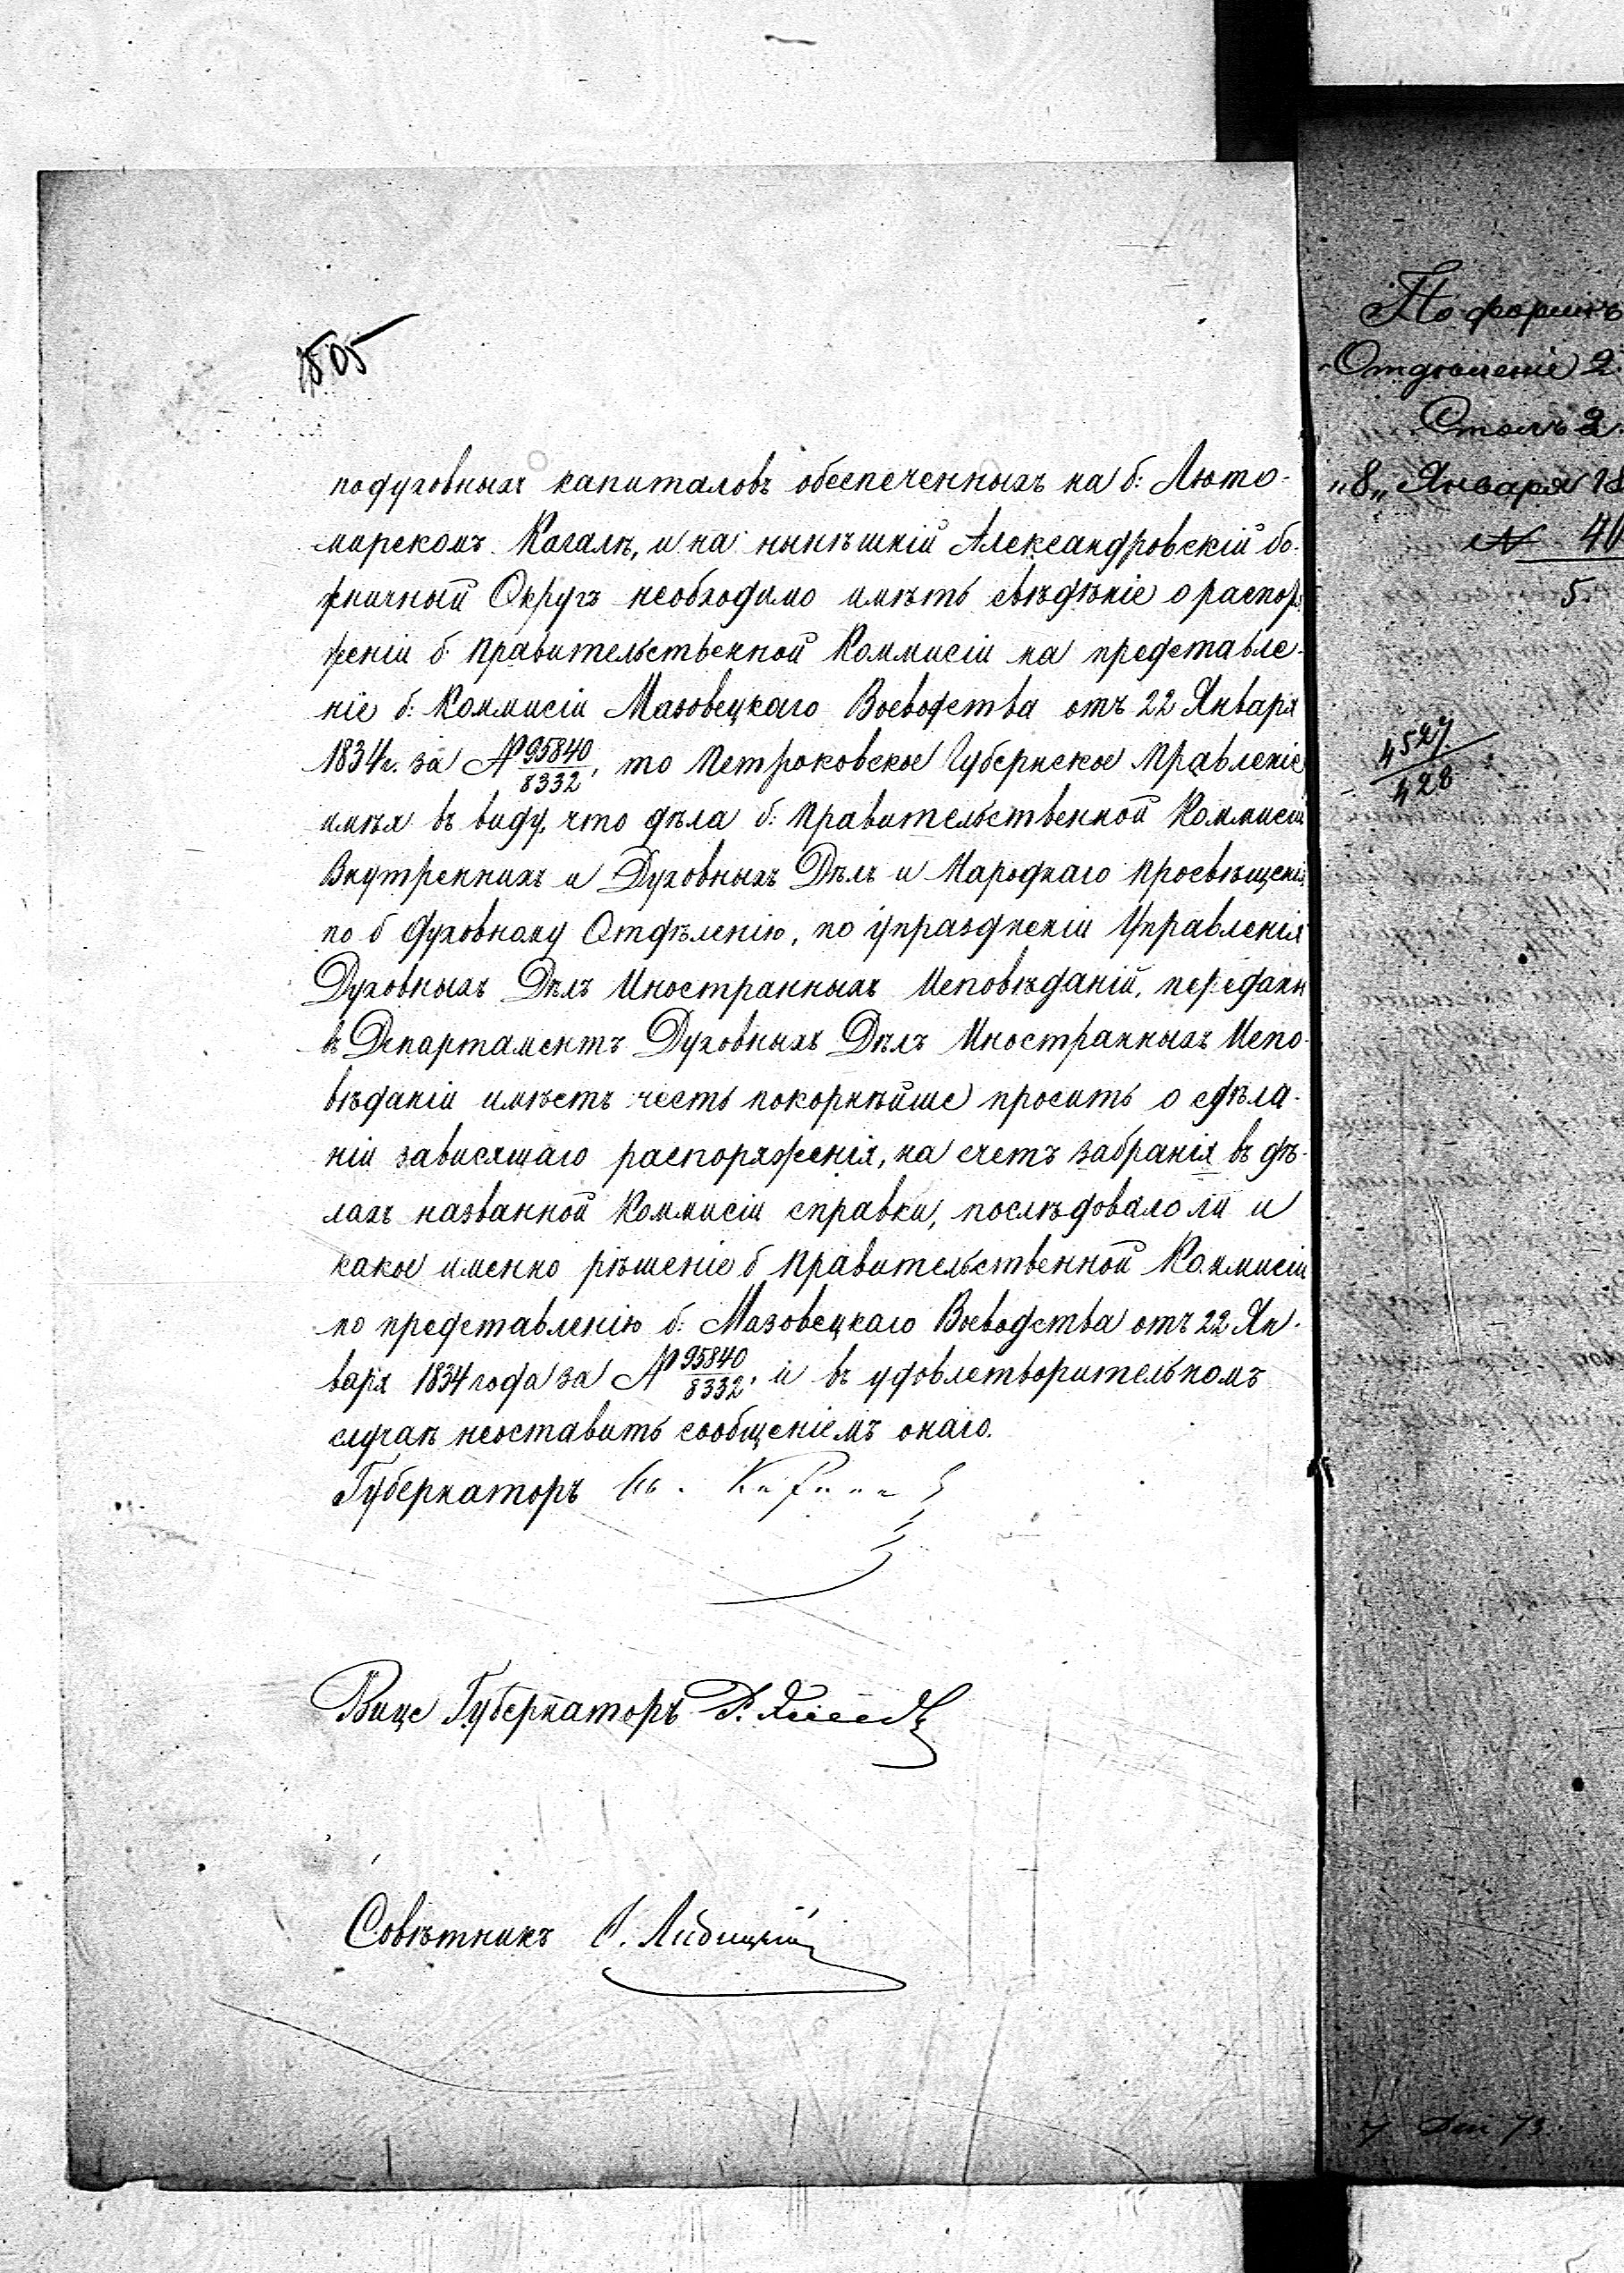 1505
подуховныхъ капиталовъ обеспеченныхъ на б: Люто-
мирскомъ Кагалѣ, и на нынѣшній Александровскій бо-
жничный Округъ необходимо имѣть свѣдѣніе о распоря
женіи б Правительственной Коммисіи на представле-
ніе б: Коммисіи Мазовецкаго Воеводства отъ 22 Января
1834 г. за № 95840/8332, то Петроковское Губернское Правленіе
имѣя въ виду, что дѣла б: Правительственной Коммисіи
Внутреннихъ и Духовныхъ Дѣлъ и Народнаго Просвѣщенія
по б Духовному Отдѣленію, по упраздненіи Управленія
Духовныхъ Дѣлъ Иностранныхъ Исповѣданій, переданы
въ Департаментъ Духовныхъ Дѣлъ Иностранныхъ Испо-
вѣданій имѣетъ честь покорнѣйше просить о сдѣла-
ніи зависящаго распоряженія, на счетъ забранія въ дѣ-
лахъ названной Коммисіи справки, послѣдовало ли и
какое именно рѣшеніе б Правительственной Коммисіи
по представленію б: Мазовецкаго Воеводства отъ 22 Ян-
варя 1834 года за № 95840/8332, и въ удовлетворительномъ
случаѣ неоставить сообщеніемъ онаго.
Губернаторъ
Вице Губернаторъ
Совѣтникъ
По формѣ
Отдѣленіе 2.
Столъ 2.
"8" Января 18
№ 40
5.
4527/428